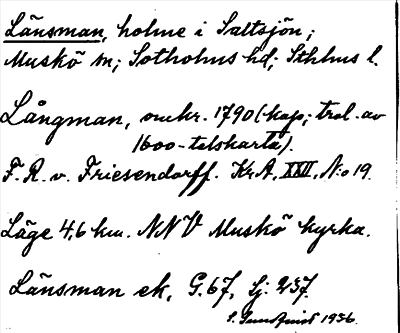 Länsman, holme i Saltsjön;
Muskö sn; Sotholms hd; Sthlms l.
Långman, omkr. 1790 (kop; trol. av
1600-talskarta).
F. R. v. Friesendorff. Kr.A, XXII, N:o 19.
Läge 4,6 km. NNV Muskö kyrka.
Länsman ek, G.67, Sj: 237.
S. Sundqvist 1936.